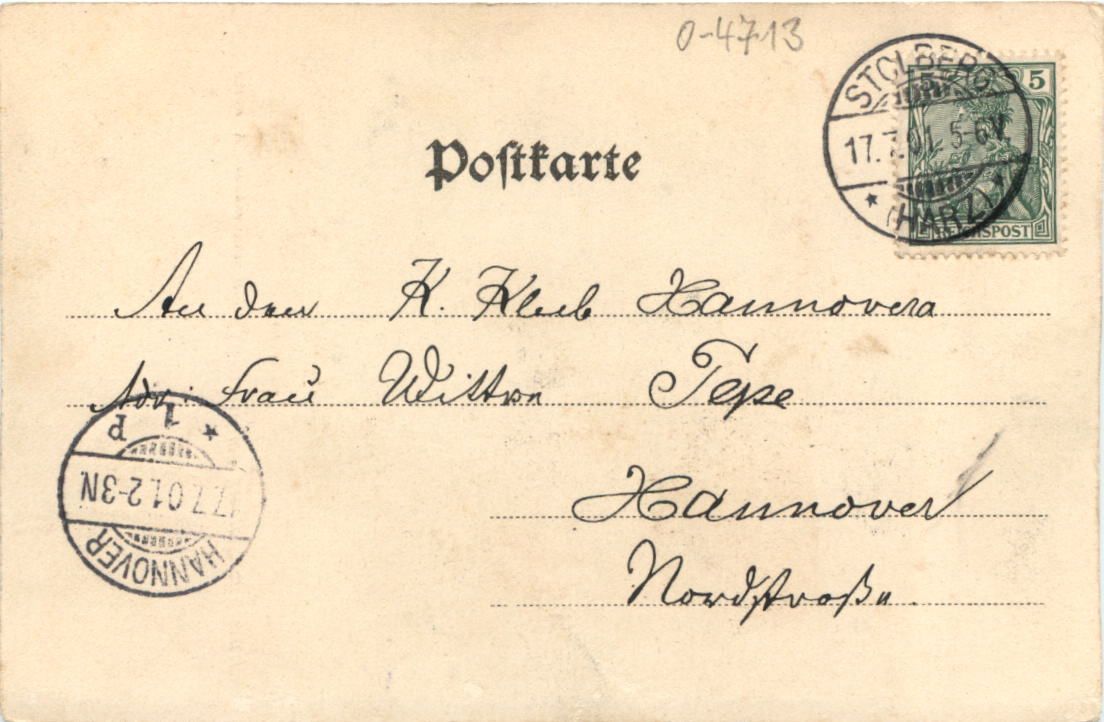 0-4713
STOLBERG
17.7.01. 5-6V.
* (HARZ) *
5 5
REICHSPOST
Poſtkarte
An den K. Klub Hannovera
Adr. Frau Wittwe Tepe
Hannover
Nordstraße.
* 1 P
17.7.01. 2-3N.
HANNOVER